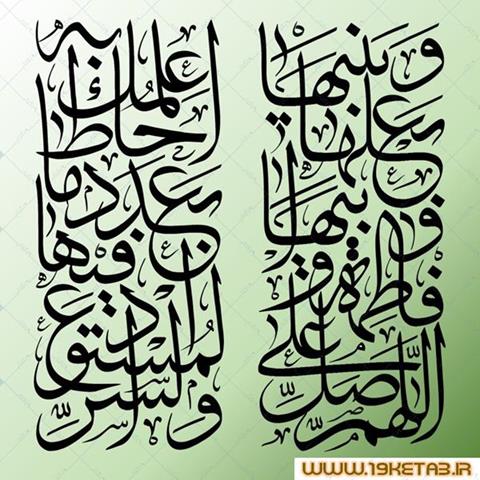 اللهم صل على
فاطمة و
ابيها و
بعلها
و بنيها
والسر
المستودع
فيها
بعدد ما
احاط
به علمك
WWW.19KETAB.IR